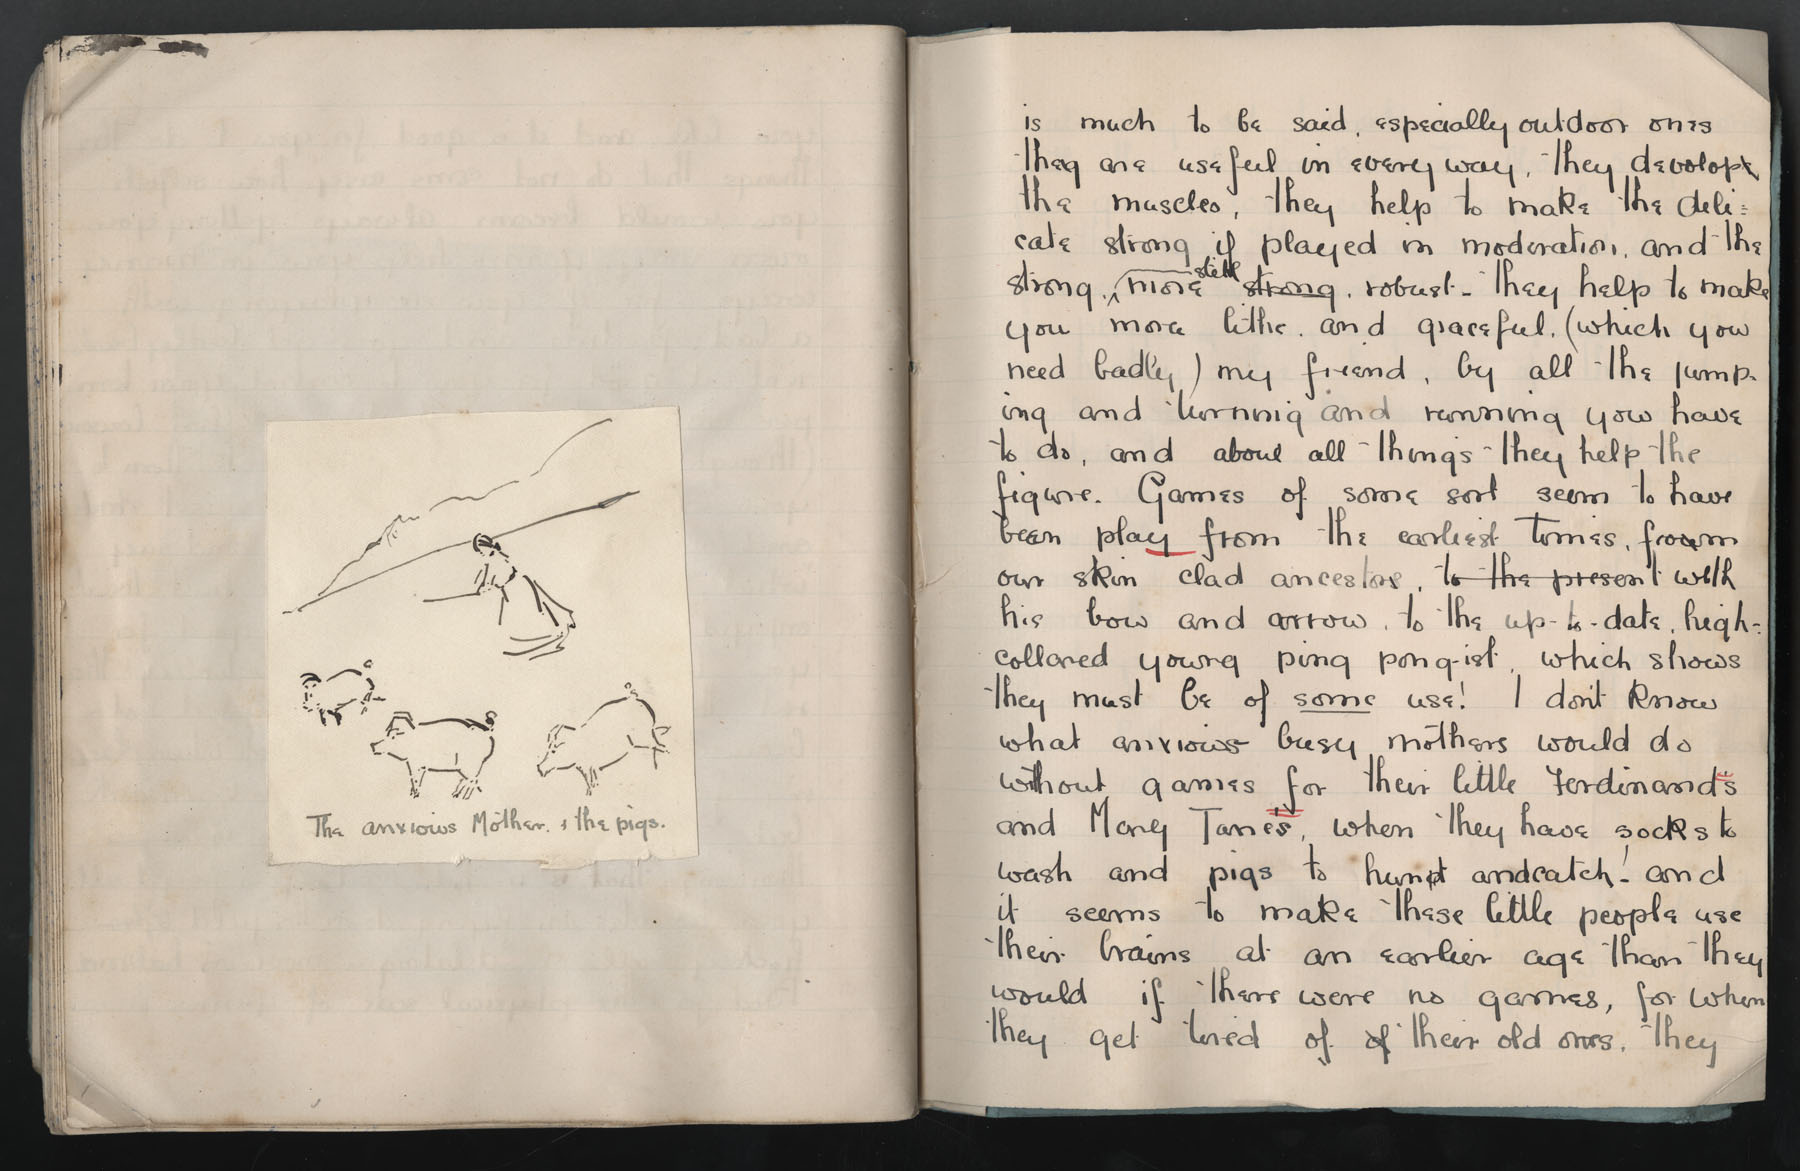 The anxious Mother. & the pigs.
is much to be said, especially outdoor ones
they are useful in every way, they devolope
the muscles, they help to make the deli=
cate strong if played in moderation, and the
strong, more still strong, robust - they help to make
you more lithe and graceful, (which you
need badly) my friend, by all the jump-
ing and turning and running you have
to do, and above all things they help the
figure. Games of some sort seem to have
been play from the earliest Times, from
our skin clad ancestors, to the present with
his bow and arrow, to the up-to-date, high-
collared young ping pong-ist, which shows
they must be of some use! I don't know
what anxious busy mothers would do
without games for their little Ferdinand's
and Mary Janes, when they have socks to
wash and pigs to hunt and catch! - and
it seems to make these little people use
their brains at an earlier age than they
would if there were no games, for when
they get tired of of their old ones, they